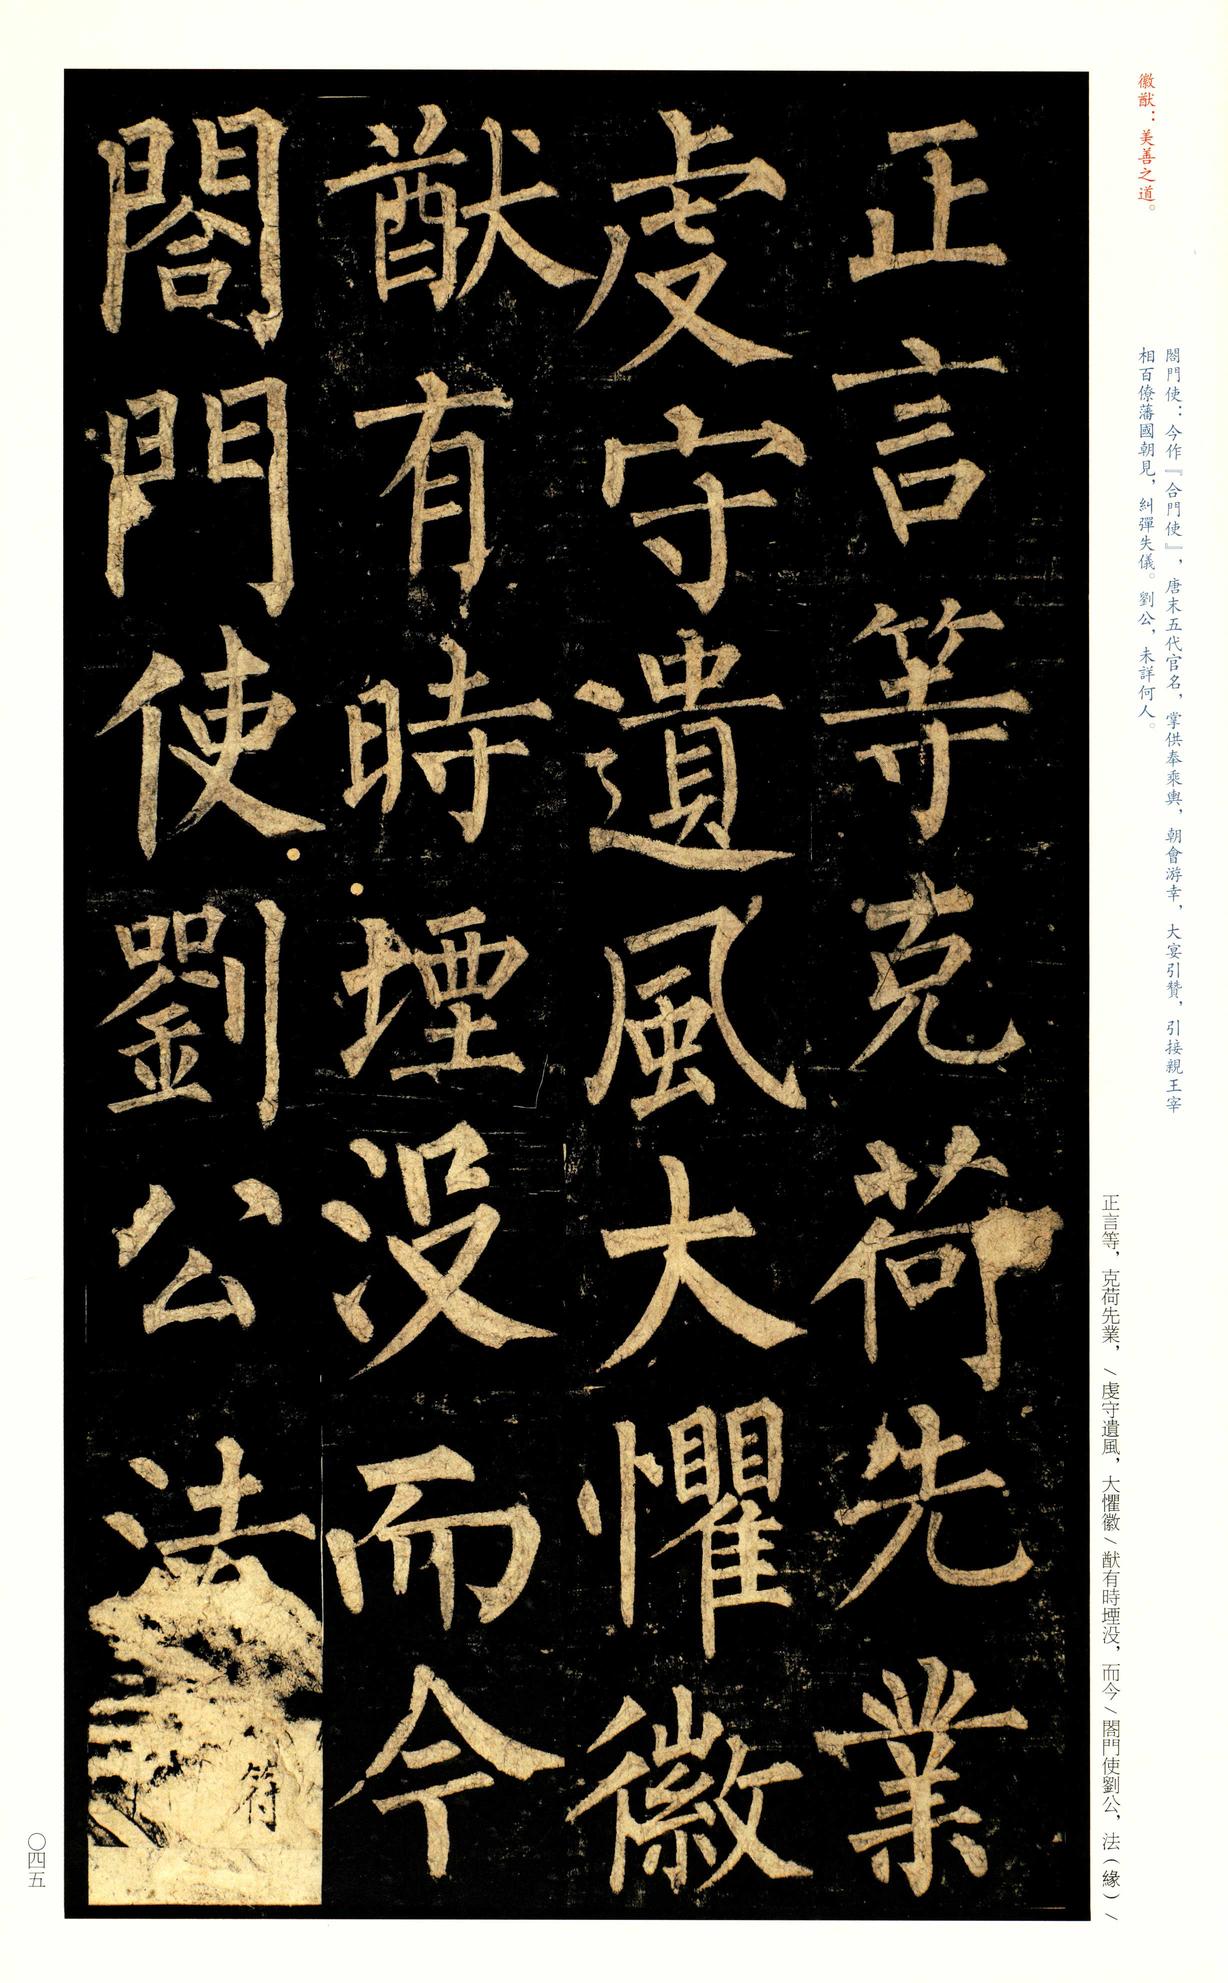 徽猷：美善之道。
閤門使：今作『合門使』，唐末五代官名，掌供奉乘輿，朝會游幸，大宴引贊，引接親王宰
相百僚藩國朝見，糾彈失儀。劉公，未詳何人。
正言等，克荷先業，/虔守遺風，大懼徽/猷有時堙没，而今/閤門使劉公，法（緣）/
正言等克荷先業
虔守遺風大懼徽
猷有時堙没而今
閤門使劉公法
符
〇四五